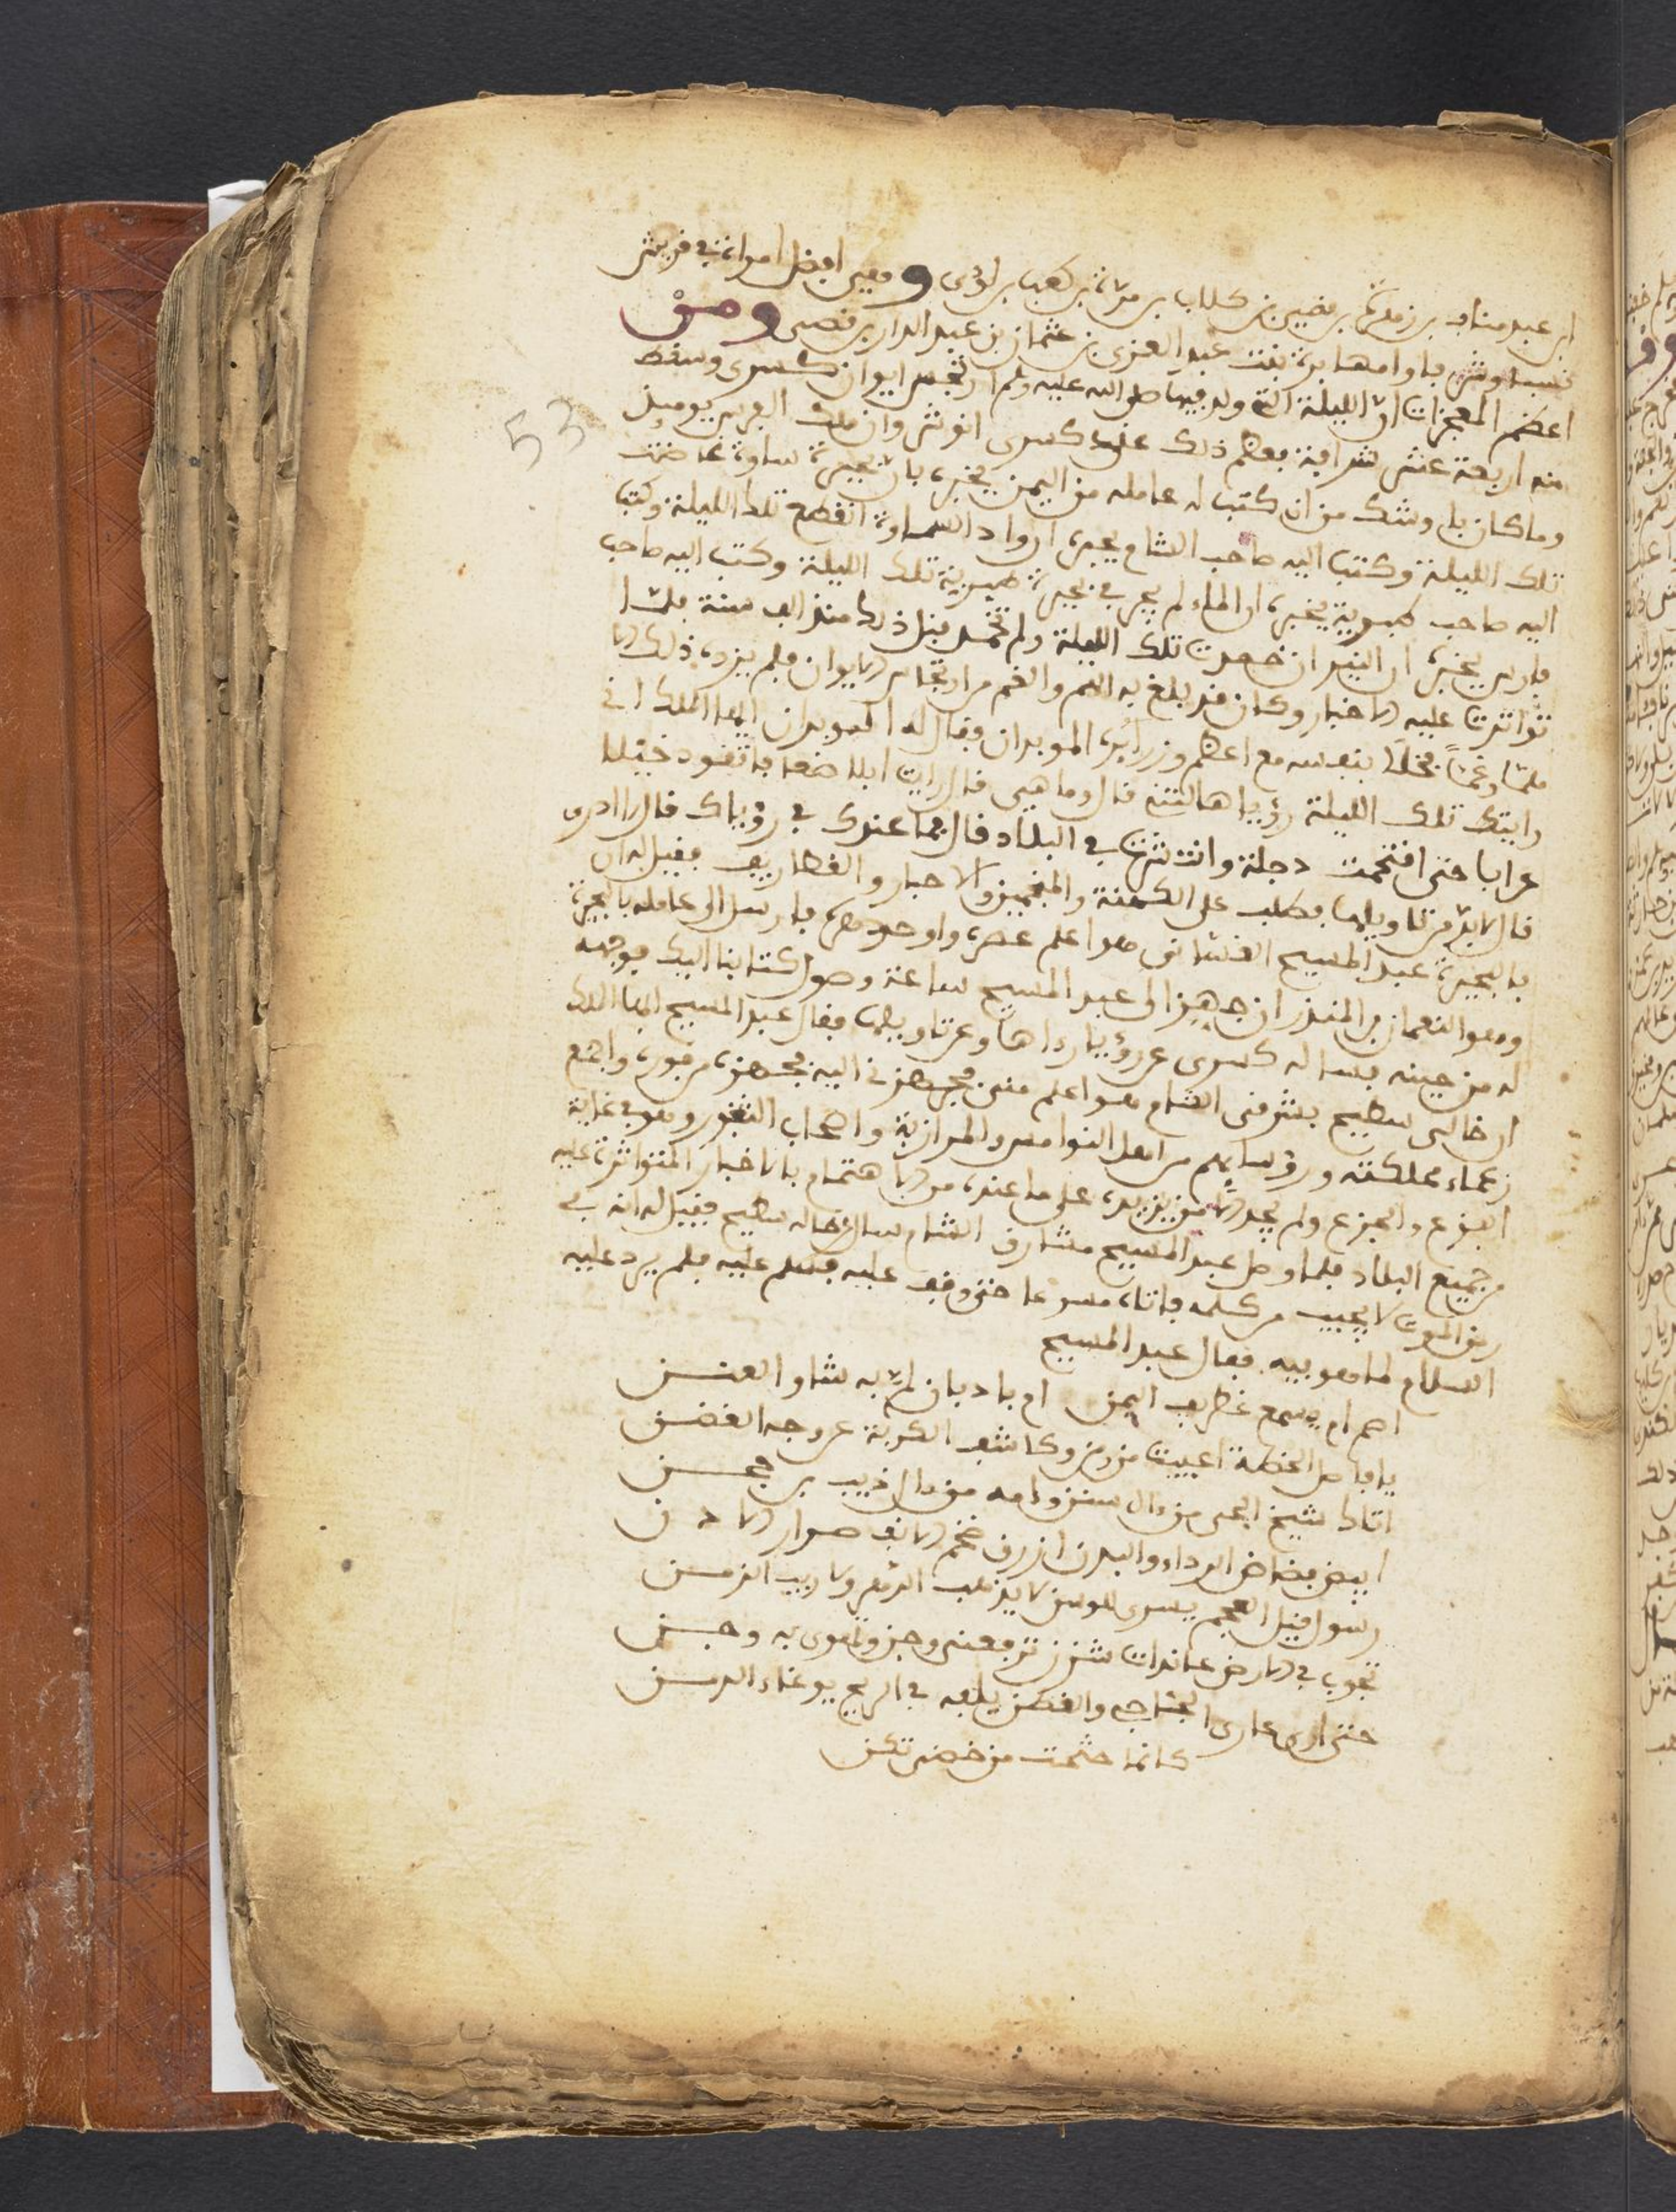 ابن عبد مناف بن زهرة بن قصي بن كلاب بن مرة بن كعب بن لؤي وهي افضل امراة في قريش
نسبا وشرفا وامها برة بنت عبد العزى بن عثمان بن عبد الدار بن قصي ومن
اعظم المعجزات ان الليلة التي ولد فيها صلى الله عليه وسلم ارتجس ايوان كسرى وسقط
منه اربعة عشر شرافة فعظم ذلك على كسرى انوشروان ملك الفرس يوميذ
وما كان باوشك من ان كتب له عامله من اليمن يخبره بان بحيرة ساوة غاضت
تلك الليلة وكتب اليه صاحب الشام يخبره ان واد السماوة انقطع تلك الليلة وكتب
اليه صاحب طبرية يخبره ان الماء لم يجر في بحيرة طبرية تلك الليلة وكتب اليه صاحب
فارس يخبره ان النيران خمدت تلك الليلة ولم تخمد قبل ذلك منذ الف سنة فلما
تواترت عليه الاخبار وكان قد بلغ به الهم والغم من ارتجاس الايوان فلم يزده ذلك الا
هلعا وغما فخلا بنفسه مع اعظم وزرائه الموبدان فقال له الموبدان ايها الملك اني
رايتك تلك الليلة رؤيا هالتني قال وما هي قال رايت ابلا صعابا تقود خيلا
عرابا حتى اقتحمت دجلة وانتشرت في البلاد قال فما عندك في رؤياك قال لا ادري
قال لا بد من تاويلها فطلب على الكهنة والمنجمين والاحبار والغطاريف فقيل له ان
بالحيرة عبد المسيح الغساني هو اعلم عصره واوحدهم فارسل الى عامله بالحيرة
وهو النعمان بن المنذر ان جهز الي عبد المسيح ساعة وصول كتابنا اليك فوجهه
له من حينه فساله كسرى عن رؤيا رءاها وعن تاويلها فقال عبد المسيح ايها الملك
ان خالي سطيح بشرقي الشام هو اعلم مني فجهزني اليه فجهزه من فوره واجمع
زعماء مملكته ورؤسايهم من اهل النواميس والمرازبة واصحاب الثغور وهو في غاية
الفزع والجزع ولم يجد الا من يزيده على ما عنده من الاهتمام بالاخبار المتواترة عليه
من جميع البلاد فلما وصل عبد المسيح مشارف الشام سال عن خاله سطيح فقيل له انه في
ربق الموت لا يجيب من كلمه فاتاه مسرعا حتى وقف عليه فسلم عليه فلم يرد عليه
السلام لما هو فيه فقال عبد المسيح
اصم ام يسمع غطريف اليمن ام باد بان لم به شاو العنن
يا فاصل الخطة اعيت من ومن وكاشف الكربة عن وجه الغضن
اتاك شيخ الحي من ءال سنن وامه من ءال ذيب بن حجن
ابيض فضفاض الرداء والبدن ازرق ضخم الناب صرار الاذن
رسول قيل العجم يسرى للوسن لا يرهب الرعد ولا ريب الزمن
تجوب في الارض علندات شزن ترفعني وجن وتهوى به وجن
حتى ارى عاري الجئاجي والقطن يلفه في الريح بوغاء الدمن
كانما حثحث من حضني ثكن
53